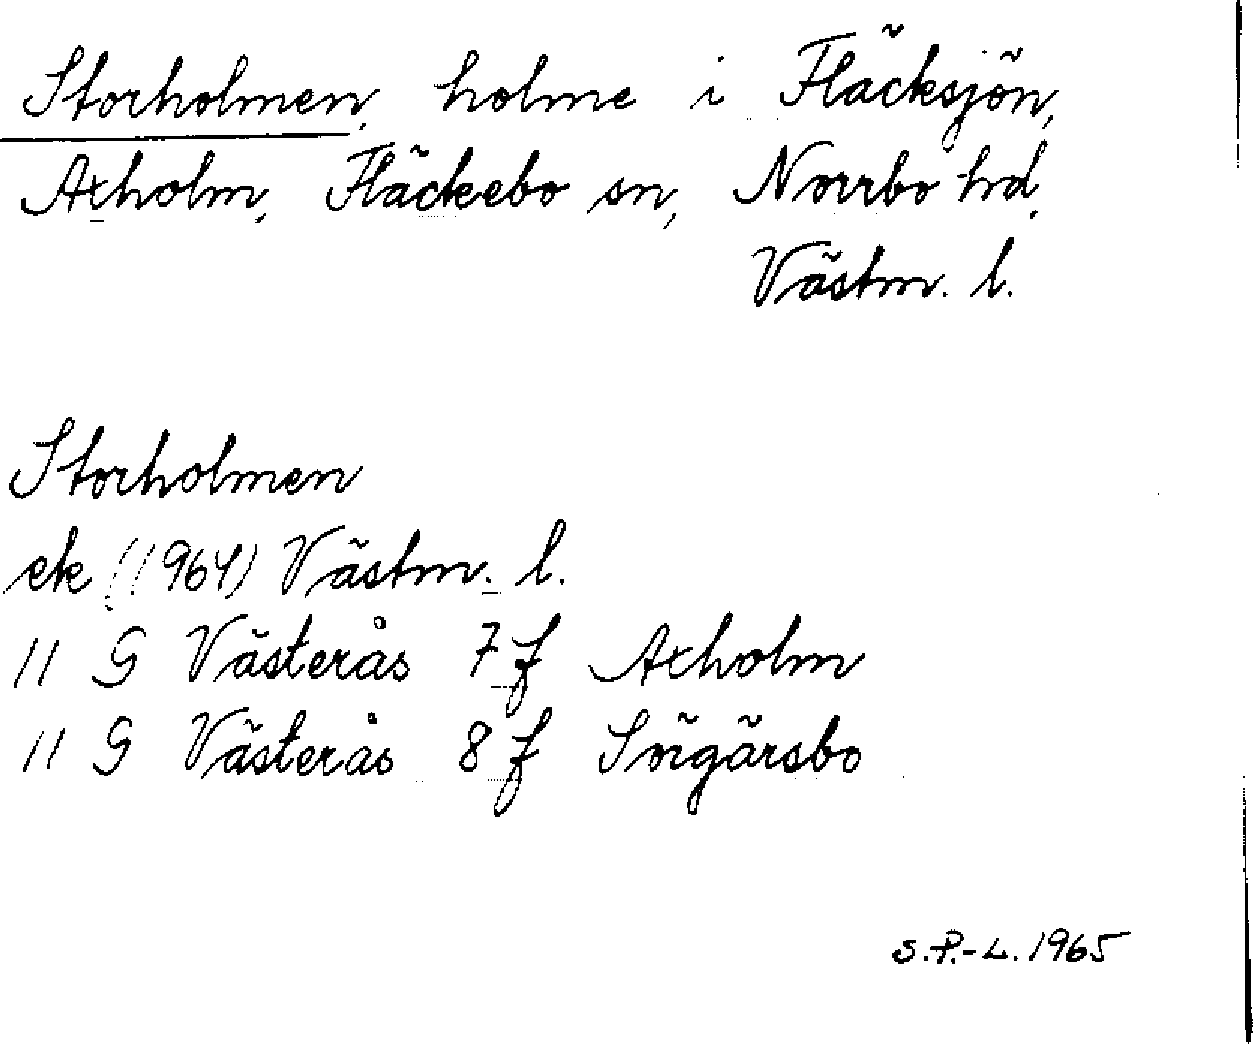 Storholmen, holme i Fläcksjön,
Axholm, Fläckebo sn, Norrbo hd,
Västm. l.
Storholmen
ek (1964) Västm. l.
11 G Västerås 7 f Axholm
11 G Västerås 8 f Sörgärsbo
S.P.-L. 1965